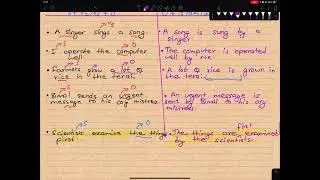 S V S
A singer sings a song.
I operate the computer
well.
Farmers grow a lot of
rice in the terai.
Bimal sends an urgent
message to his
Scientists examine the things
first.
A song is sung by a
singer.
The computer is operated
well by me.
A lot of rice is grown in
the terai.
An urgent message is
sent by Bimal to his
first
The things are examined
by the scientists.